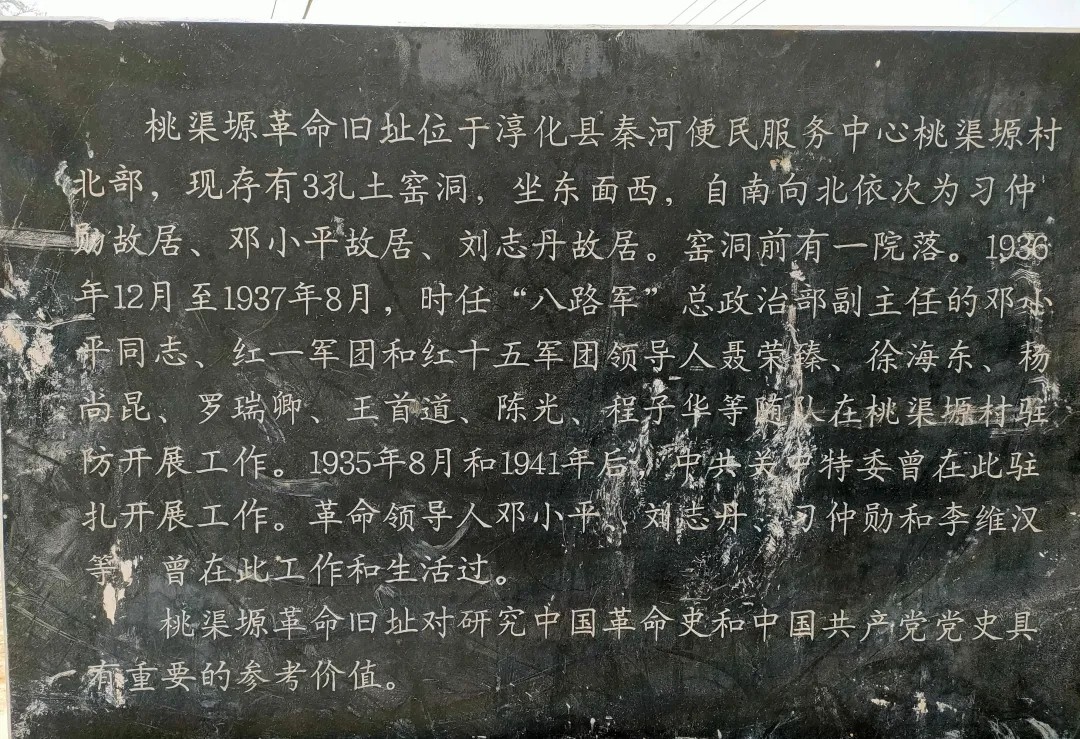 桃渠塬革命旧址位于淳化县秦河便民服务中心桃渠塬村
北部，现存有3孔土窑洞，坐东面西，自南向北依次为习仲
勋故居、邓小平故居、刘志丹故居。窑洞前有一院落。1936
年12月至1937年8月，时任“八路军”总政治部副主任的邓小
平同志、红一军团和红十五军团领导人聂荣臻、徐海东、杨
尚昆、罗瑞卿、王首道、陈光、程子华等随队在桃渠塬村驻
防开展工作。1935年8月和1941年后，中共关中特委曾在此驻
扎开展工作。革命领导人邓小平、刘志丹、习仲勋和李维汉
等，曾在此工作和生活过。
桃渠塬革命旧址对研究中国革命史和中国共产党党史具
有重要的参考价值。